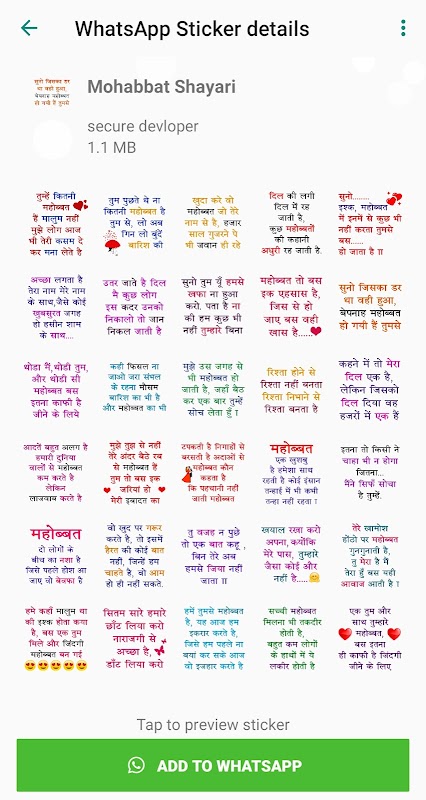 WhatsApp Sticker details
सुनो जिसका डर
था वही हुआ,
बेपनाह महोब्बत
हो गयी हैं तुमसे
Mohabbat Shayari
secure devloper
1.1 MB
तुम्हें कितनी
महोब्बत
हैं मालुम नहीं
मुझे लोग आज
भी तेरी कसम दे
कर मना लेते है
तुम पुछते थे ना
कितनी महोब्बत है
तुम से, लो अब
गिन लो बूंदें
बारिश की
खुदा करे वो
महोब्बत जो तेरे
नाम से है, हजार
साल गुजरने पे
भी जवान ही रहे
दिल की लगी
दिल में रह
जाती है,
कुछ महोब्बतों
की कहानी
अधुरी रह जाती है.
सुनो........
इश्क, महोब्बत
में इनमें से कुछ भी
नही करता तुमसे
बस......
हो जाता है ॥
अच्छा लगता है
तेरा नाम मेरे नाम
के साथ,जैसे कोई
खुबसुरत जगह
हो हसीन शाम
के साथ....
उतर जाते है दिल
में कुछ लोग
इस कदर उनको
निकालो तो जान
निकल जाती है
सुनो तुम यूँ हमसे
खफा ना हुआ
करो, पता है ना
की हम कुछ भी
नहीं तुम्हारे बिना
महोब्बत तो बस
इक एहसास है,
जिस से हो
जाए बस वही
खास है.....
सुनो जिसका डर
था वही हुआ,
बेपनाह महोब्बत
हो गयी हैं तुमसे
थोडा मैं,थोडी तुम,
और थोडी सी
महोब्बत बस
इतना काफी है
जीने के लिये
कही फिसल ना
जाओ जरा संभल
के रहना मौसम
बारिश का भी है
और महोब्बत का भी
मुझे उस जगह से
भी महोब्बत हो
जाती है, जहाँ बैठ
कर एक बार तुम्हें
सोच लेता हुँ ।
रिश्ता होने से
रिश्ता नहीं बनता
रिश्ता निभाने से
रिश्ता बनता है
कहने में तो मेरा
दिल एक है,
लेकिन जिसको
दिल दिया वह
हजरों में एक हैं
आदतें बहुत अलग है
हमारी दुनिया
वालों से महोब्बत
कम करते है
लेकिन
लाजवाब करते है
मुझे तुझ से नहीं
तेरे अंदर बैठे रब
से महोब्बत हैं
तुम तो बस इक
जरियां हो
मेरी इबादत का
टपकती है निगाहों से
बरसती है अदाओं से
महोब्बत कौन
कहता है
कि पहचानी नहीं
जाती महोब्बत
महोब्बत
एक खुशबु
है हमेशा साथ
रहती है कोई इंसान
तन्हाई में भी कभी
तन्हा नहीं रहता ।
इतना तो किसी ने
चाहा भी न होगा
जितना...
मैंने सिर्फ सोचा
है तुम्हें.
महोब्बत
दो लोगों के
बीच का नशा है
जिसे पहले होश आ
जाए वो बेवफा है
वो खुद पर गरूर
करते है, तो इसमें
हैरत की कोई बात
नहीं, जिन्हें हम
चाहते है, वो आम
हो ही नहीं सकते.
तु वजह न पुछे
तो एक बात कहु,
बिन तेरे अब
हमसे जिया नहीं
जाता ॥
खयाल रखा करो
अपना,क्योंकि
मेरे पास, तुम्हारे
जैसा कोई और
नहीं है.....
तेरे खामोश
होंठो पर महोब्बत
गुनगुनाती है,
तु मेरा है मैं
तेरा हुँ बस यही
आवाज आती है ।
हमे कहाँ मालुम था
की इश्क होता क्या
है, बस एक तुम
मिले और जिंदगी
महोब्बत बन गई
सितम सारे हमारे
छाँट लिया करो
नाराजगी से
अच्छा है,
डाँट लिया करो
हमें तुमसे महोब्बत
है, यह आज हम
इकरार करते है,
जिसे हम पहले ना
बया कर सके आज
वो इजहार करते है
सच्ची महोब्बत
मिलना भी तकदीर
होती है,
बहुत कम लोगों
के हाथों में ये
लकीर होती है
एक तुम और
साथ तुम्हारे
महोब्बत,
बस इतना
ही काफी है जिंदगी
जीने के लिए
Tap to preview sticker
ADD TO WHATSAPP